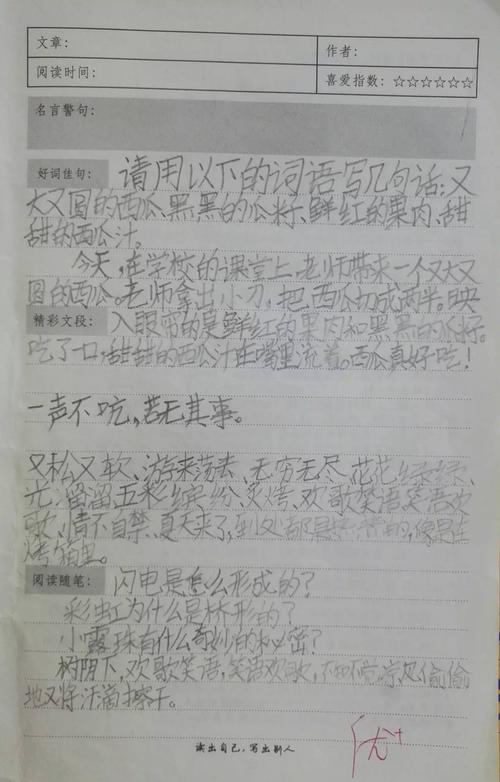 文章：
作者：
阅读时间：
喜爱指数：☆☆☆☆☆☆
名言警句：
好词佳句： 请用以下的词语写几句话：又
大又圆的西瓜、黑黑的瓜籽、鲜红的果肉、甜
甜的西瓜汁。
今天，在学校的课堂上，老师带来一个又大又
圆的西瓜。老师拿出小刀，把西瓜切成两半。映
精彩文段： 入眼帘的是鲜红的果肉和黑黑的瓜籽。
吃了一口，甜甜的西瓜汁在嘴里流着。西瓜真好吃！
一声不吭，若无其事。
又松又软、游来荡去、无穷无尽、花花绿绿、
光溜溜、五彩缤纷、炙烤、欢歌笑语、笑语欢
歌、情不自禁、夏天来了，到处都是热的，像是在
烤箱里。
阅读随笔： 闪电是怎么形成的？
彩虹为什么是桥形的？
小露珠有什么奇妙的秘密？
树阴下，欢歌笑语，笑语欢歌，不知不觉，凉风偷偷
地又将汗滴擦干。
读出自己，写出别人
优+